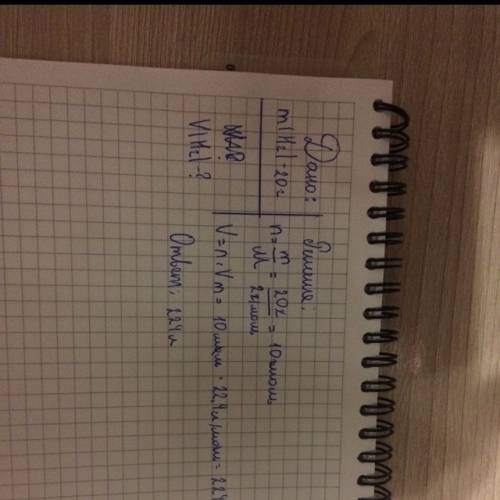 Дано:
m(H2)-20г
V(H2)-?
Решение:
n=m/M=20г/2г/моль=10моль
V=n·Vm=10моль·22,4л/моль=224
Ответ: 224л